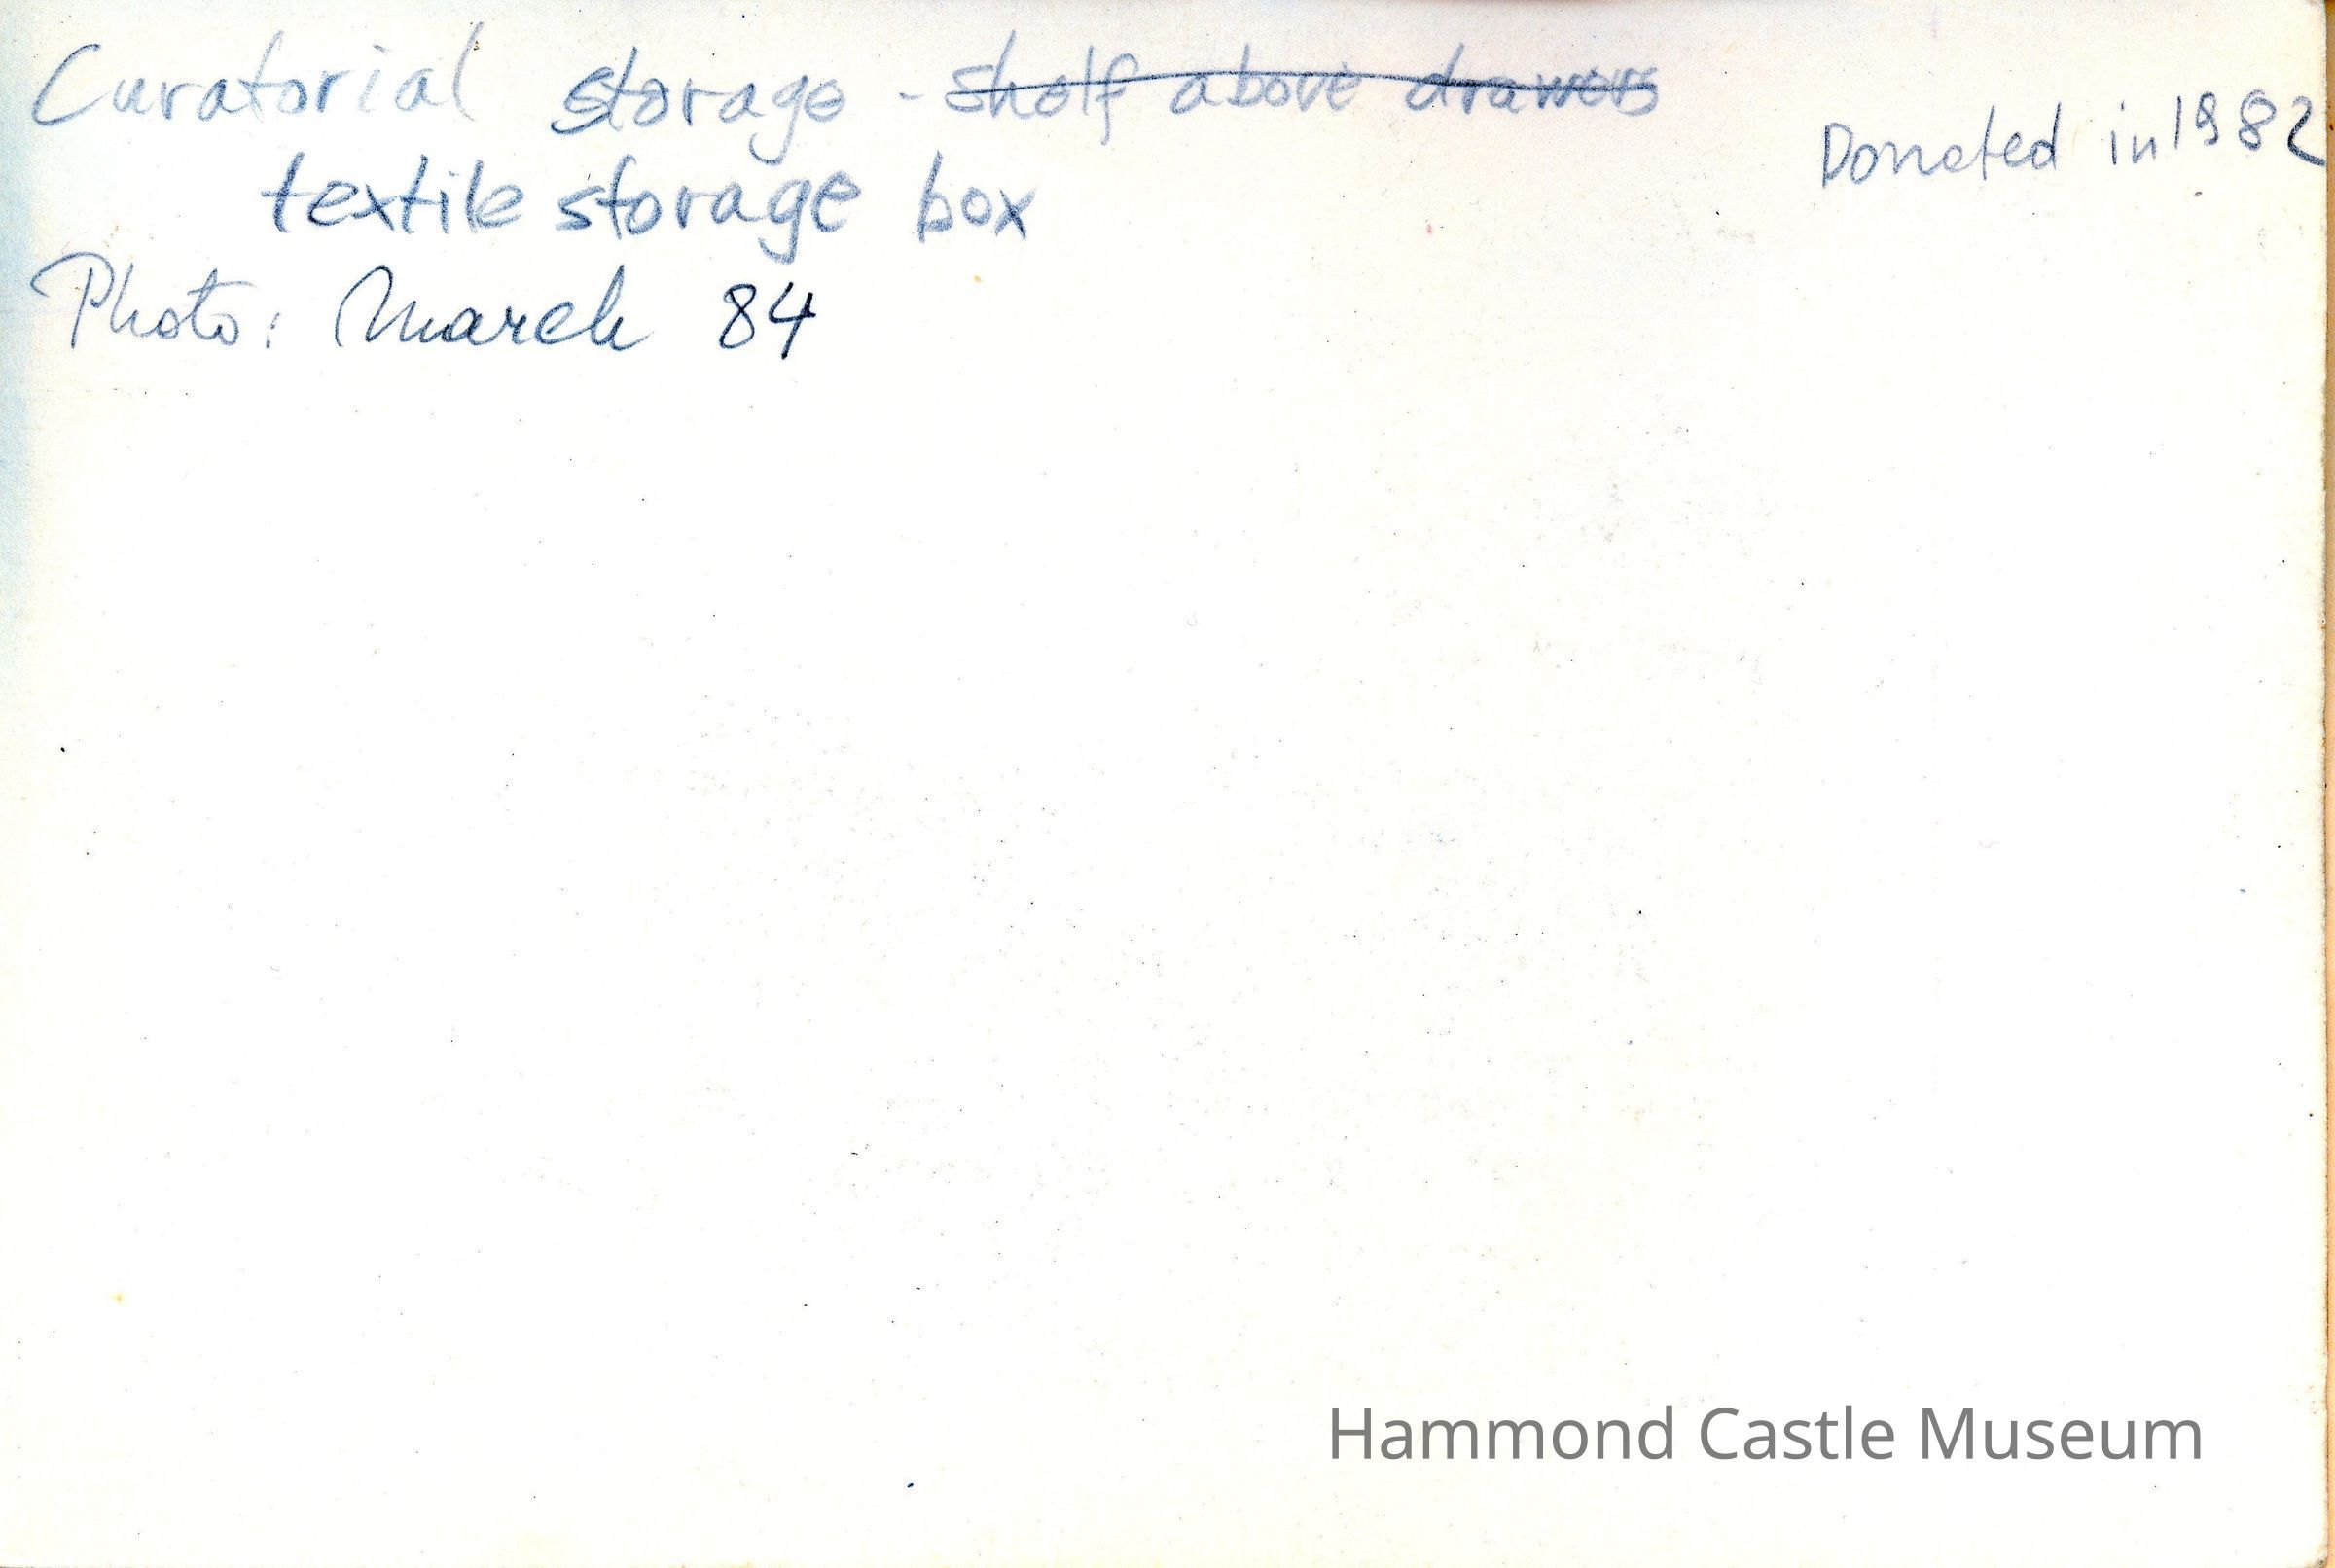 Curatorial storage - shelf above drawers
Donated in 1982
textile storage box
Photo: March 84
Hammond Castle Museum